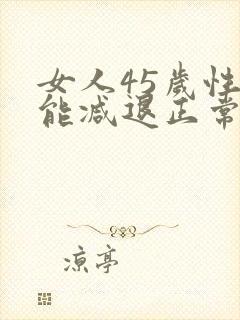 女人45歲性
能減退正常
凉亭